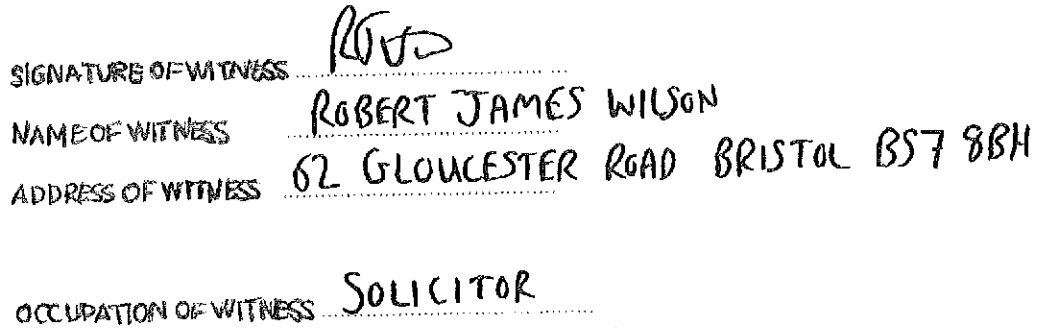 SIGNATURE OF WITNESS
NAME OF WITNESS ROBERT JAMES WILSON
ADDRESS OF WITNESS 62 GLOUCESTER ROAD BRISTOL BS7 8BH
OCCUPATION OF WITNESS SOLICITOR